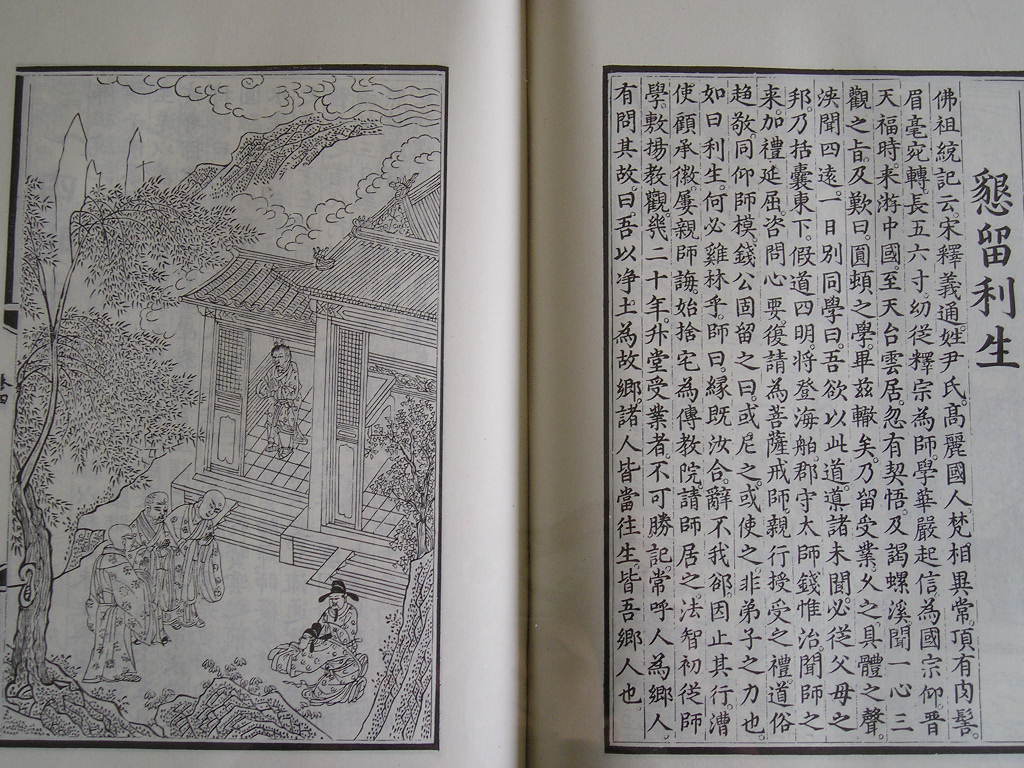 懇留利生
佛祖統記云。宋釋義通。姓尹氏。高麗國人。梵相異常。頂有肉髻。
眉毫宛轉。長五六寸。幼從釋宗為師。學華嚴起信。為國宗仰。晉
天福時。来游中國。至天台雲居。忽有契悟。及謁螺溪。聞一心三
觀之旨。及歎曰。圓頓之學。畢茲轍矣。乃留受業。久之具體之聲
浹聞四遠。一日別同學曰。吾欲以此道。導諸未聞。必從父母之
邦。乃括囊東下。假道四明。將登海舶。郡守太師錢惟治。聞師之
来。加禮延屈。咨問心要。復請為菩薩戒師。親行授受之禮。道俗
趨敬。同仰師模。錢公固留之曰。或尼之。或使之。非弟子之力也。
如曰利生。何必雞林乎。師曰。緣既汝合。辭不我郤。因止其行。漕
使顧承徽。屢親師誨。始捨宅為傳教院。請師居之。法智初從師
學。敷揚教觀。幾二十年。升堂受業者。不可勝記。常呼人為鄉人。
有問其故。曰。吾以净土為故鄉。諸人皆當往生。皆吾鄉人也。